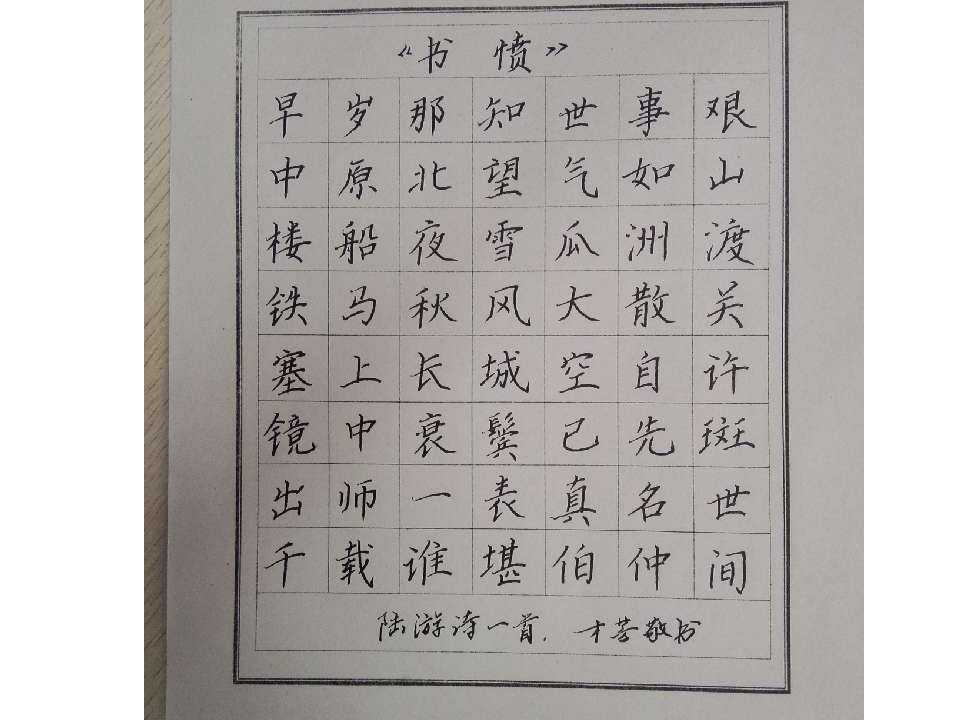 《书愤》
早岁那知世事艰
中原北望气如山
楼船夜雪瓜洲渡
铁马秋风大散关
塞上长城空自许
镜中衰鬓已先斑
出师一表真名世
千载谁堪伯仲间
陆游诗一首.才芳敬书